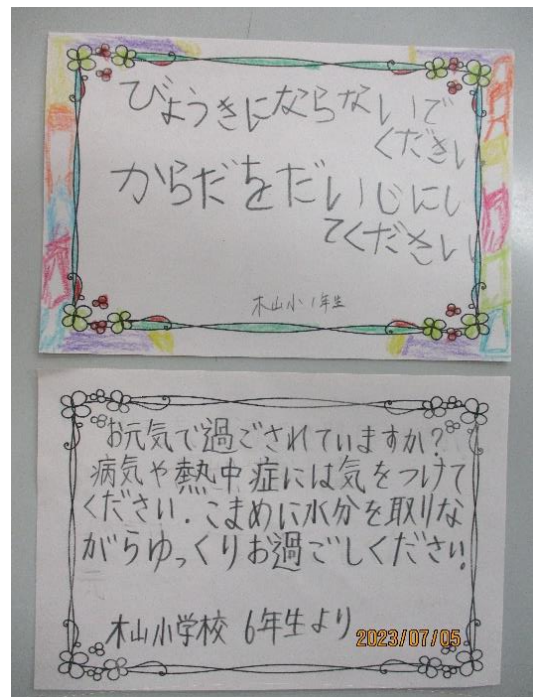 びょうきにならないで
ください
からだをだいじにし
てください
木山小1年生
お元気で過ごされていますか?
病気や熱中症には気をつけて
ください.こまめに水分を取りな
がらゆっくりお過ごしください.
木山小学校 6年生より
2023/07/05